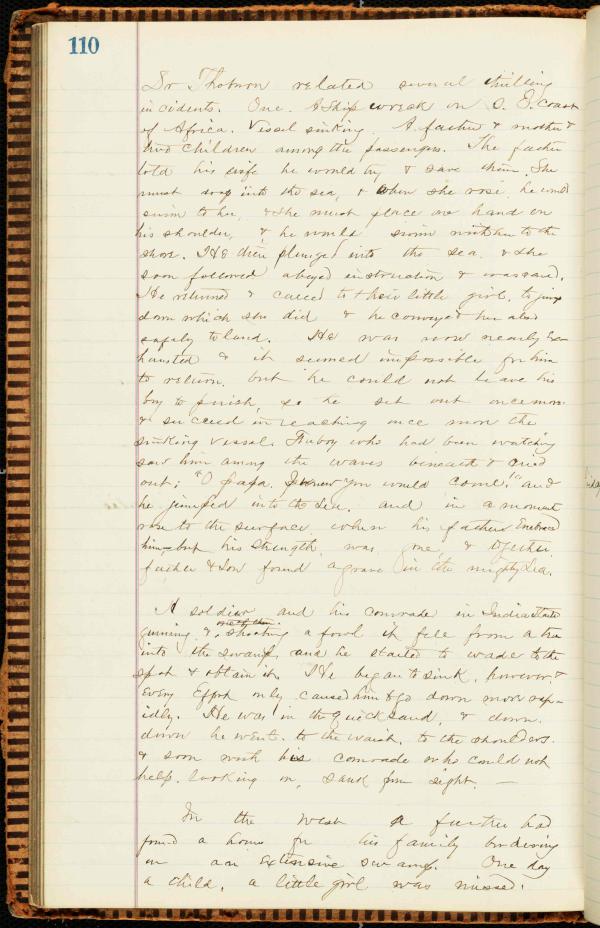 110
Dr Thomson related several thrilling
incidents. One. A Ship wreck on S. E. Coast
of Africa. Vessel sinking. A father & mother &
two children among the passengers. The father
told his wife he would try & save them. She
must drop into the sea, & when she rose he would
swim to her, & she must place one hand on
his shoulder, & he would swim with her to the
shore. He then plunged into the sea & she
soon followed obeyed instruction & was saved.
He returned & called to their little girl, to jump
down which she did & he conveyed her also
safely to land. He was now nearly Ex-
hausted & it seemed impossible for him
to return, but he could not leave his
boy to perish, so he set out once more
& succeed in reaching once more the
sinking vessel. The boy who had been watching
saw him among the waves beneath & cried
out; "O papa I knew you would come!" and
he jumped into the Sea. and in a moment
rose to the surface when his father Embraced
him, but his strength was gone, & together
father & Son found a grave in the mighty Sea.
A soldier and his comrade in India
gunning &, shooting a fowl it fell from a tree
into the swamp, and he started to wade to the
spot & obtain it. He began to sink, however, &
Every Effort only caused him to go down more rap-
idly. He was in the quick sand, & down.
down he went. to the waist, to the shoulders.
& soon with his comrade who could not
help, looking on, sank from sight. —
In the West a father had
found a home for his family bordering
on an Extensive swamp. One day
a child, a little girl was missed.